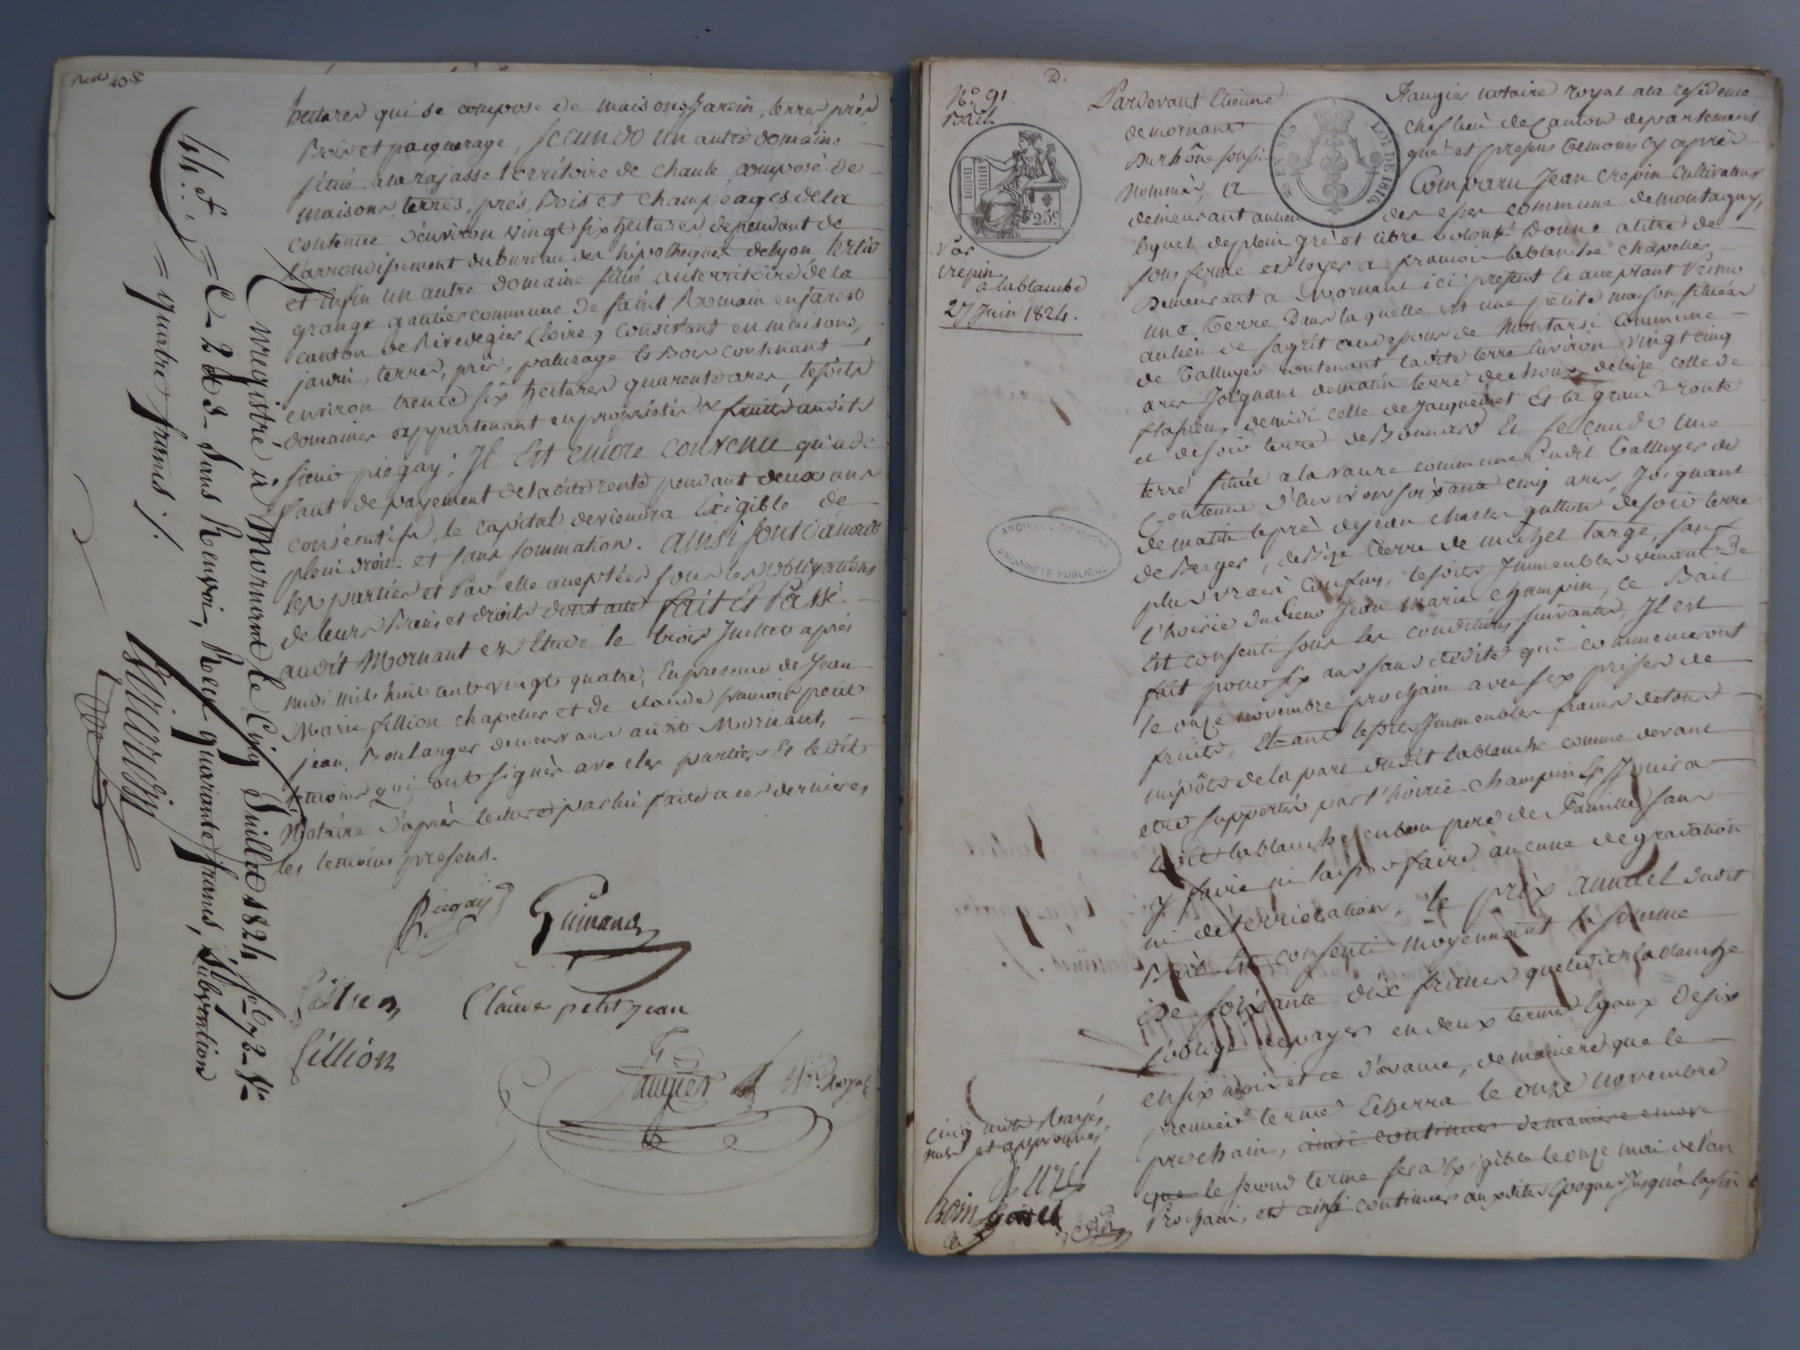 hectares qui se compose de maisons Jardin, terres près
Bois et paquerage, Secundo un autre domaine
situé a la rajasse territoire de chante, composé de
maisons terres, prés, Bois et champéages de la
contenue d'environ vingt six hectares, dependant de
l'arrondissement du bureau des hipotheques de lyon tertio
et enfin un autre domaine situé au territoire de la
grange gautier commune de saint Romain en jarest
canton de Rivedegier (loire) consistant en maisons,
jardin, terres, près, paturage et Bois contenant
environ trente six hectares quarente ares, lesdits
domaines appartenant en propriétés & fruits audit
sieur piegay; Il Est encore convenu qu'a de
faut de payement de ladite rente pendant deux ans
consécutifs, le capital deviendra Exigible de
plein droit et sans sommation. ainsi sont d'accord
les parties et Par elle acceptées sous les obligations
de leurs Biens et droits dont acte fait et Passé
audit Mornant en Etude le trois Juillet après
midi mil huit cent vingt quatre, En presence de Jean
Marie fillion chapelier et de claude francois petit
jean, Boulanger demeurans audit Mornant,
temoins qui ont signés avec les parties Et le dit
Notaire d'après lecture par lui faite a ces dernieres
les temoins presens.
Piegay
Guinand
Claude petit jean
fillion
Jaugier
Nre Royal
Enregistré à Mornant le Cinq Juillet 1824
C. 2 & 3 Sans Renvoi, Reçu quarante francs, Subvention
quatre francs
No 91
Bail
Par
Crepin
a lablanche
27 Juin 1824.
25c
LOI DE 1816
ARCHIVES
PROPRIETE PUBLIQUE
Pardevant Etienne Jaugier notaire royal a la residence
de mornant chef lieu de Canton departement
Du Rhône soussigné et presens temoins cy après
Nommés, a Comparu Jean Crepin Cultivateur
demeurant au lieu des esses commune de montagny,
lequel de plein gré et libre volonté Donne a titre de
sous ferme et loyer a francois lablanche chapelier
Demeurant a Mornant ici présent et acceptant Primo
une terre Dans laquelle est une petite maison située
au lieu de commune
de Talluyes contenant ladite terre Environ vingt cinq
ares Joignant de matin terre de choux de bize celle de
flapieu, de midi celle de Jacquemet Et la grande route
et de soir terre de Bonnard Et Secundo une
terre située a la vaure commune dudit Talluyes de
Contenue d'Environ soixante cinq ares, Joignant
de matin le pré de jean charles guitton de soir terre
de Berger, de Bize terre de michel targe, sauf
plus vrais Confins, lesdits Immeubles venant de
l'hoirie du sieur Jean marie champin, ce Bail
Est consenti sous les conditions suivantes, Il est
fait pour six ans sans dédite qui commenceront
le onze novembre prochain avec six prises de
fruits, Etant lesdits Immeubles francs de tous
impôts de la part dudit lablanche comme devant
etre supportés par l'hoirie champin Et Jouira
ledit lablanche en bon pere de Famille sans
y faire ni laisser faire aucune degradation
ni deterrioration, le prix annuel dudit
Bail Est consenti moyennant la somme
de soixante dix francs que ledit lablanche
s'oblige de payer en deux termes Egaux de six
en six mois et ce d'avance, de maniere que le
premier terme Echerra le onze novembre
prochain, ainsi continuer de maniere encore
que le second terme sera Exigible le onze mai de l'an
Prochain, et ainsi continuer auxdites Epoques Jusqu'à la fin
cinq mots Rayés
nuls et approuvés